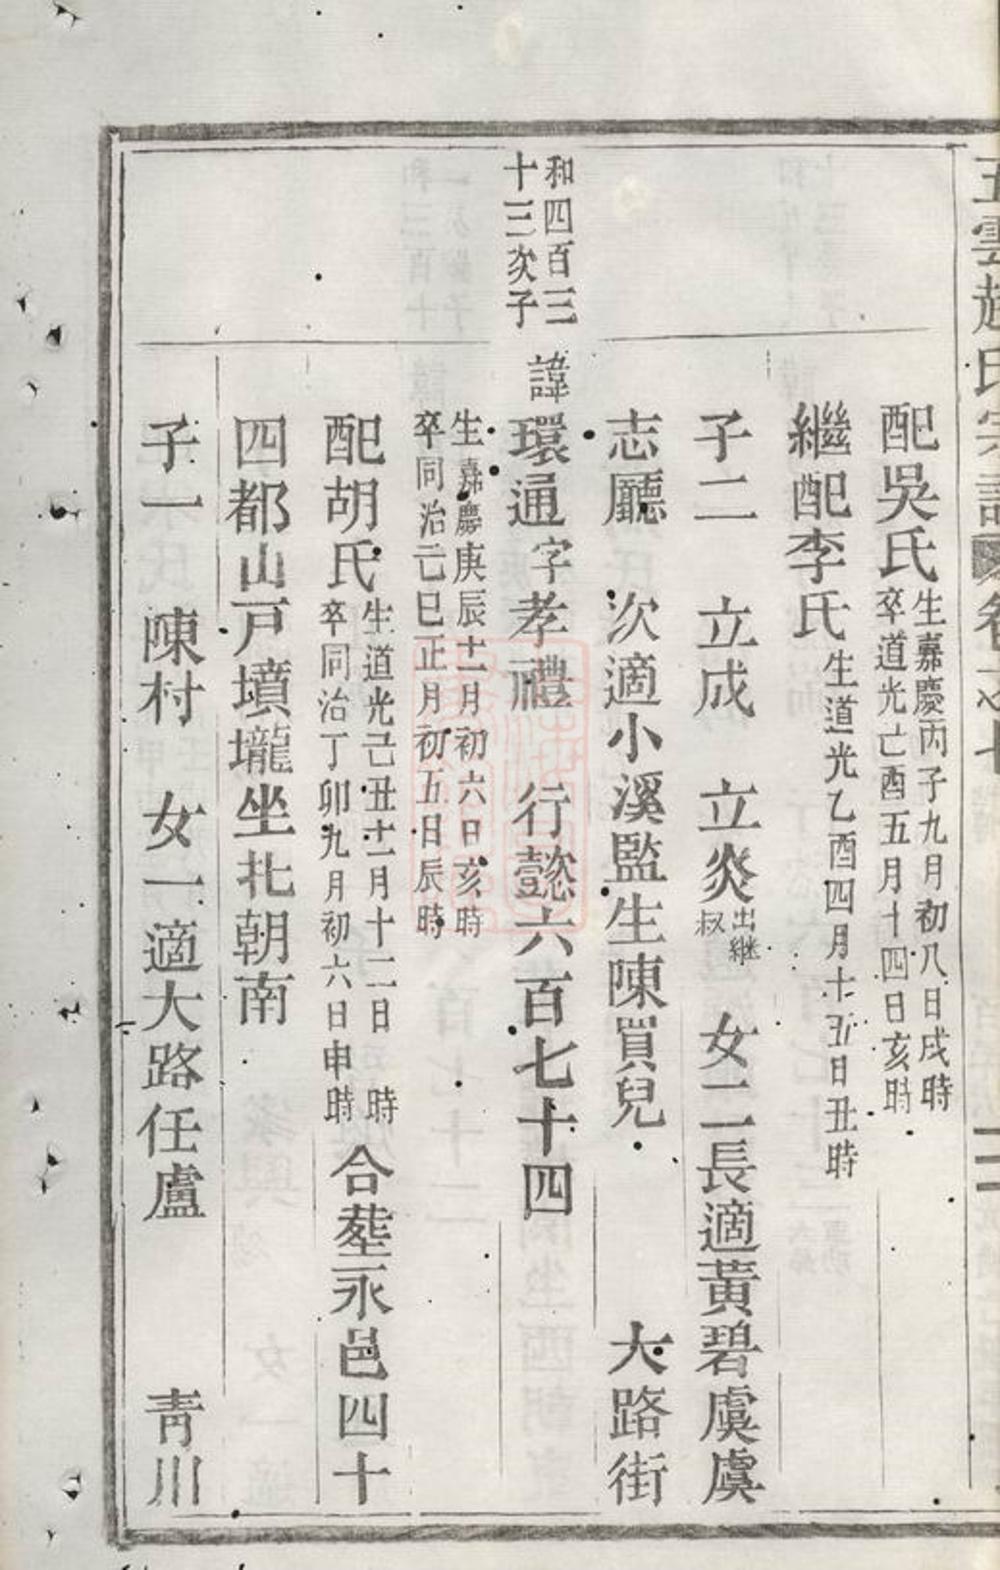 五雲趙氏宗譜 卷之七
配吳氏 生嘉慶丙子九月初八日戌時
卒道光己酉五月十四日亥時
繼配李氏 生道光乙酉四月十五日丑時
子二 立成 立炎 出繼叔 女二長適黃碧虞虞
志廳 次適小溪監生陳買兒 大路街
和四百三十三次子
諱環通字孝禮 行懿六百七十四
生嘉慶庚辰十二月初六日亥時
卒同治己巳正月初五日辰時
配胡氏 生道光己丑十二月十二日 時
卒同治丁卯九月初六日申時 合塟永邑四十
四都山戸墳壠坐北朝南
子一 陳村 女一適大路任盧 青川